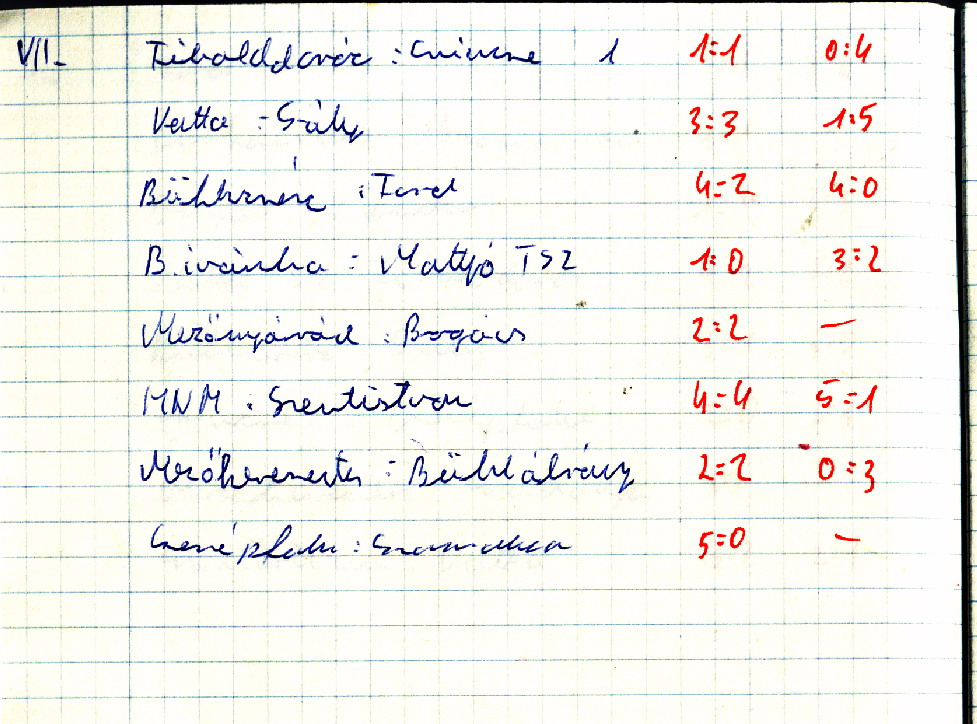 VII. Tibolddaróc : Csincse 1 1:1 0:4
Vatta : Sály 3:3 1:5
Bükkzsérc : Tard 4:2 4:0
B.ivánka : Matyó TSZ 1:0 3:2
Mezőnyárád : Bogács 2:2 —
MNM : Szentistván 4:4 5:1
Mezőkeresztes : Bükkábrány 2:2 0:3
Cserépfalu : Szomolya 5:0 —